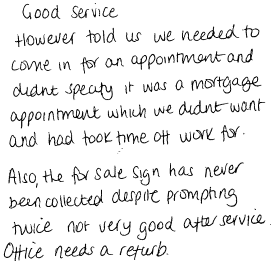 Good service
However told us we needed to
come in for an appointment and
didnt specify it was a mortgage
appointment which we didnt want
and had took time off work for.
Also, the for sale sign has never
been collected despite prompting
twice not very good after service.
Office needs a refurb.